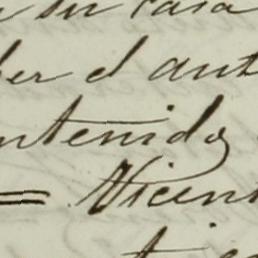 su casa
ber el ant
ntenido
= Vicent